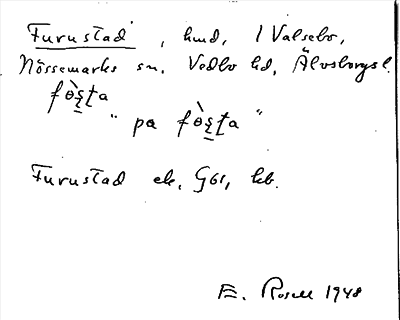 Furustad, hmd, / Valsebo,
Nössemarks sn. Vedbo hd, Älvsborgs l.
fɵ̀s̠ta
" pa fɵ̀s̠ta "
Furustad ek, G61, kb.
E. Rosell 1948